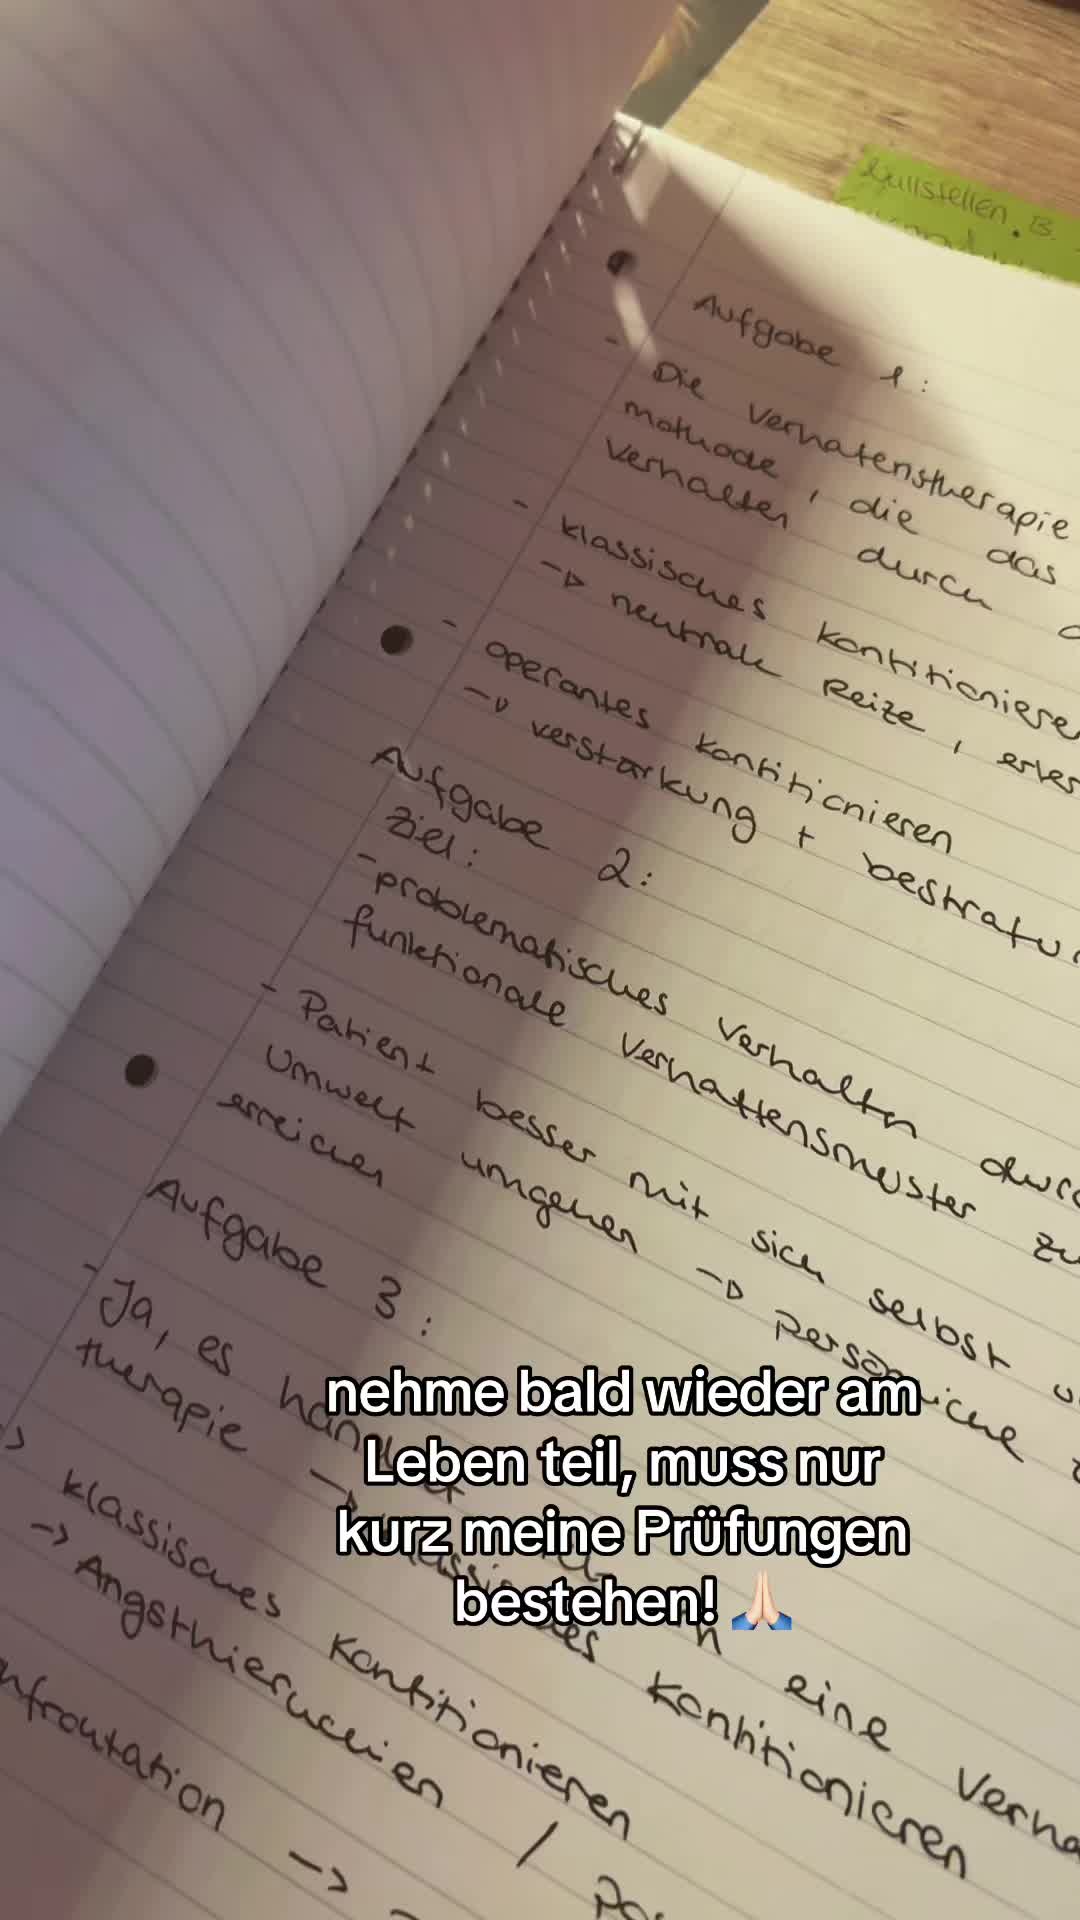 Aufgabe 1:
- Die Verhatenstherapie
methode, die das
Verhalten durch
- klassisches kontitionieren
-> neutrale Reize, erler
- operantes kontitionieren
-> verstärkung + bestrafu
Aufgabe 2:
Ziel:
- problematisches Verhalten durc
funktionale Verhaltensmuster zu
- Patient besser mit sich selbst u
Umwelt umgehen -> Persönliche
erreichen
Aufgabe 3:
- Ja, es handelt eine Verha
therapie -> klassisches kontitionieren
-> klassisches kontitionieren
-> Angsthierachien /
nfrontation ->
nehme bald wieder am
Leben teil, muss nur
kurz meine Prüfungen
bestehen! 🙏🏻